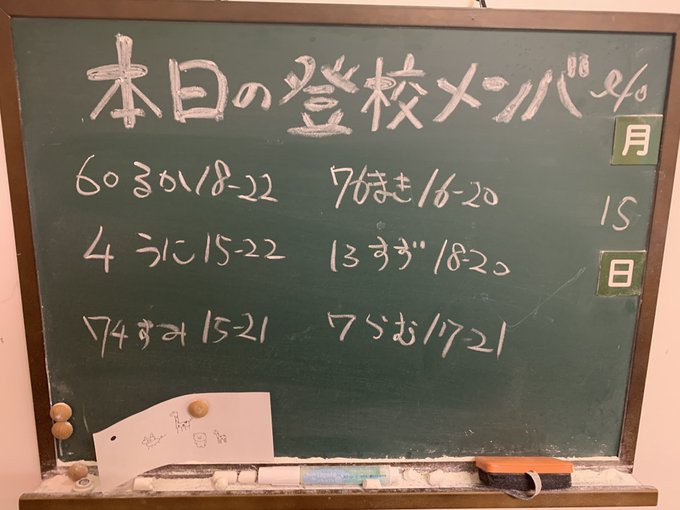 本日の登校メンバー
月
15
日
60 るか 18-22
76 まき 16-20
4 うに 15-22
13 すず 18-20
74 すみ 15-21
7 らむ 17-21